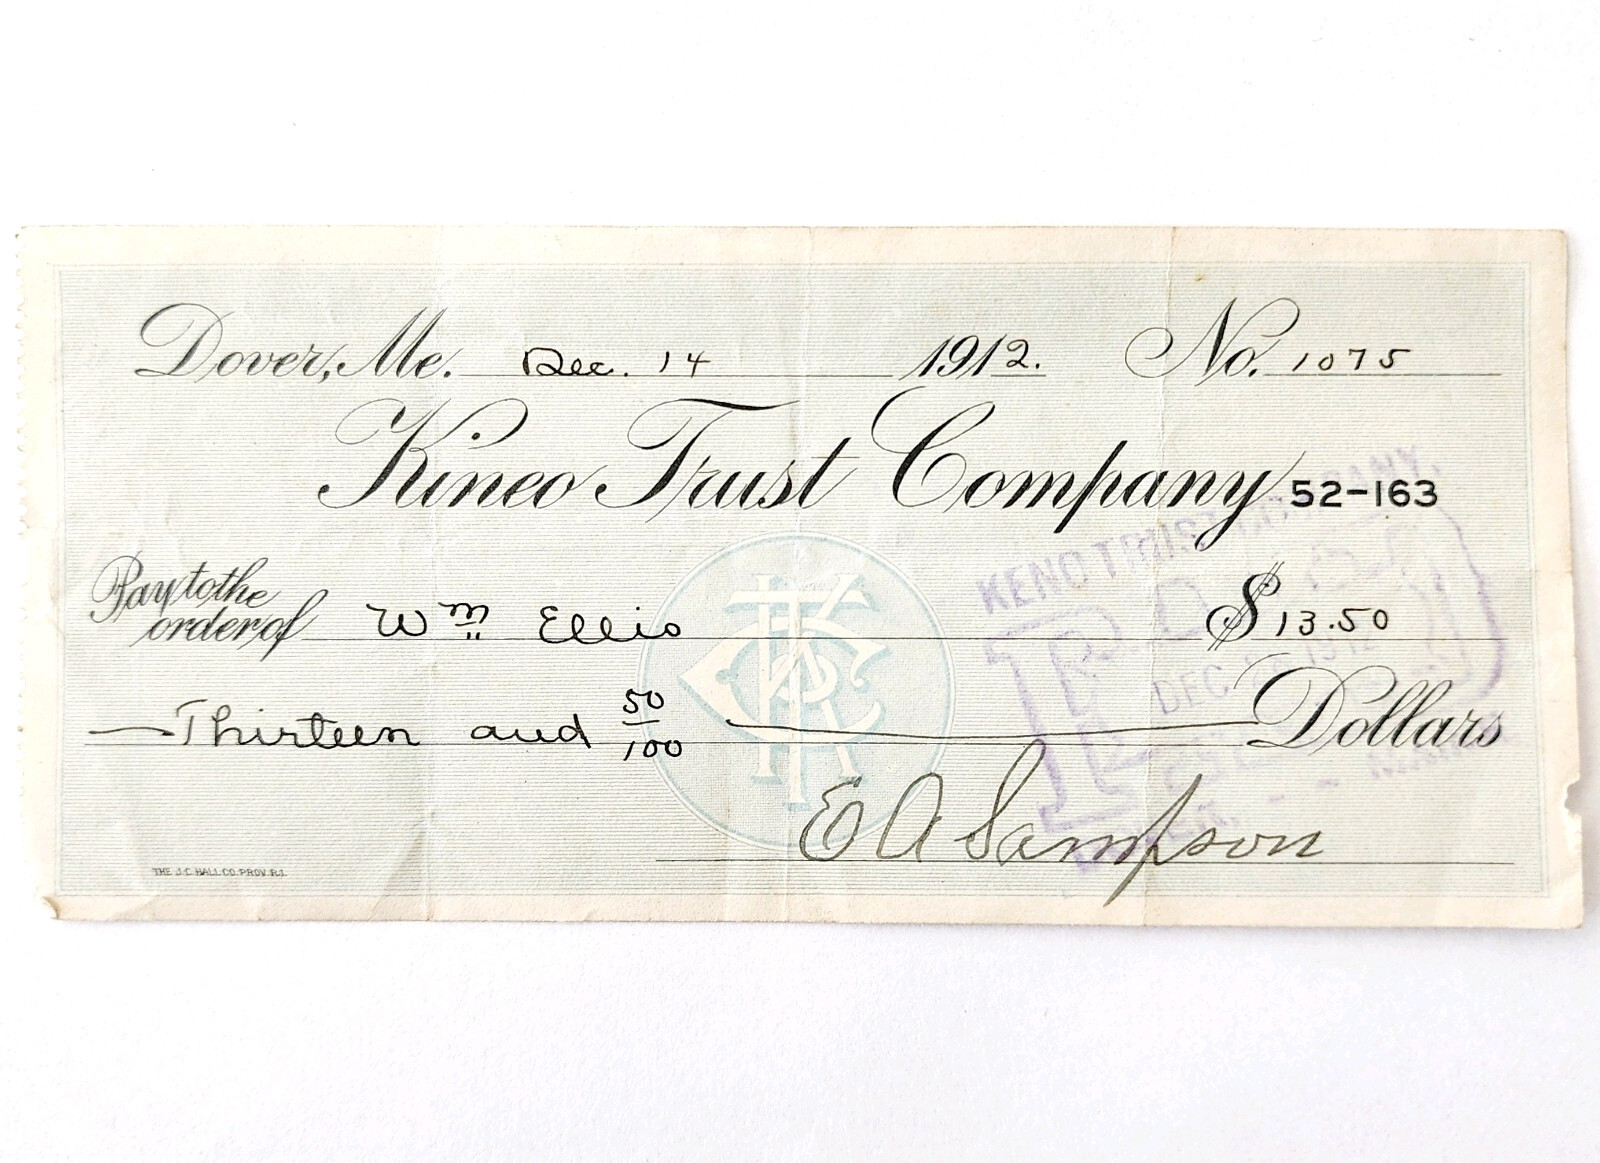 Dover, Me. Dec. 14 1912. No. 1075
Kineo Trust Company 52-163
KENO TRUST COMPANY.
Pay to the order of Wm Ellis $ 13.50
DEC 1912
Thirteen and 50/100 Dollars
E A Sampson
THE J.C. HALL CO. PROV. R.I.